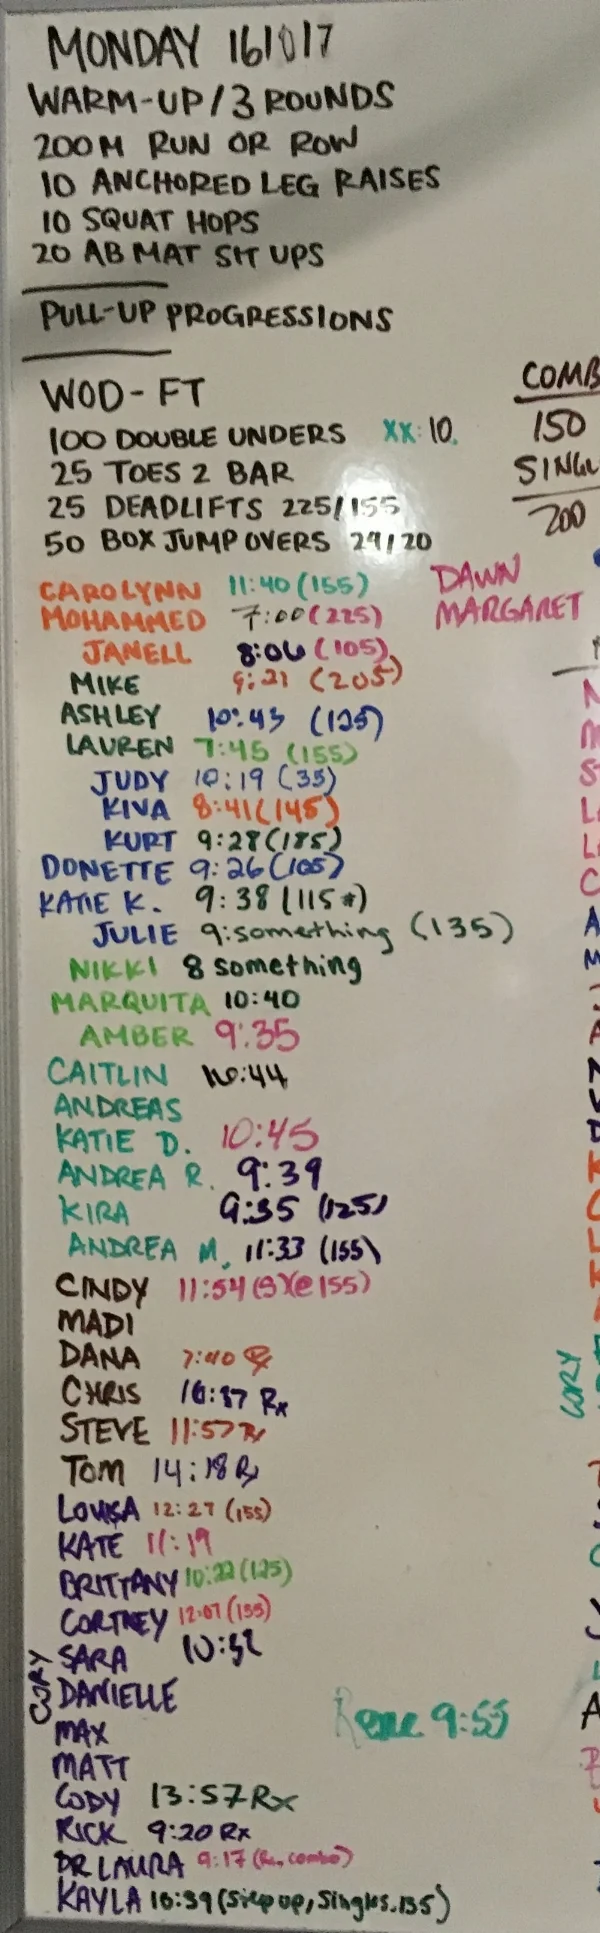 MONDAY 161017
WARM-UP/3 ROUNDS
200M RUN OR ROW
10 ANCHORED LEG RAISES
10 SQUAT HOPS
20 AB MAT SIT UPS
PULL-UP PROGRESSIONS
WOD-FT
100 DOUBLE UNDERS XX:10.
25 TOES 2 BAR
25 DEADLIFTS 225/155
50 BOX JUMP OVERS 24/20
COMB
150
SINGL
200
CAROLYNN 11:40 (155)
MOHAMMED 7:00 (225)
JANELL 8:06 (105)
DAWN
MARGARET
MIKE 9:21 (205)
ASHLEY 10:43 (125)
LAUREN 7:45 (155)
JUDY 10:19 (35)
KIVA 8:41 (145)
KURT 9:28 (185)
DONETTE 9:26 (105)
KATIE K. 9:38 (115#)
JULIE 9:something (135)
NIKKI 8 something
MARQUITA 10:40
AMBER 9:35
CAITLIN 10:44
ANDREAS
KATIE D. 10:45
ANDREA R. 9:39
KIRA 9:35 (125)
ANDREA M. 11:33 (155)
CINDY 11:54 (S)(@155)
MADI
DANA 7:40 Rx
CHRIS 10:37 Rx
STEVE 11:57 Rx
TOM 14:18 Rx
LOUISA 12:27 (155)
KATE 11:19
BRITTANY 10:22 (125)
CORTNEY 12:07 (155)
SARA 10:32
CORY
DANIELLE
Rene 9:55
MAX
MATT
CODY 13:57 Rx
RICK 9:20 Rx
DR LAURA 9:17 (Rx, combo)
KAYLA 10:39 (Step up, Singles. 135)
CORY